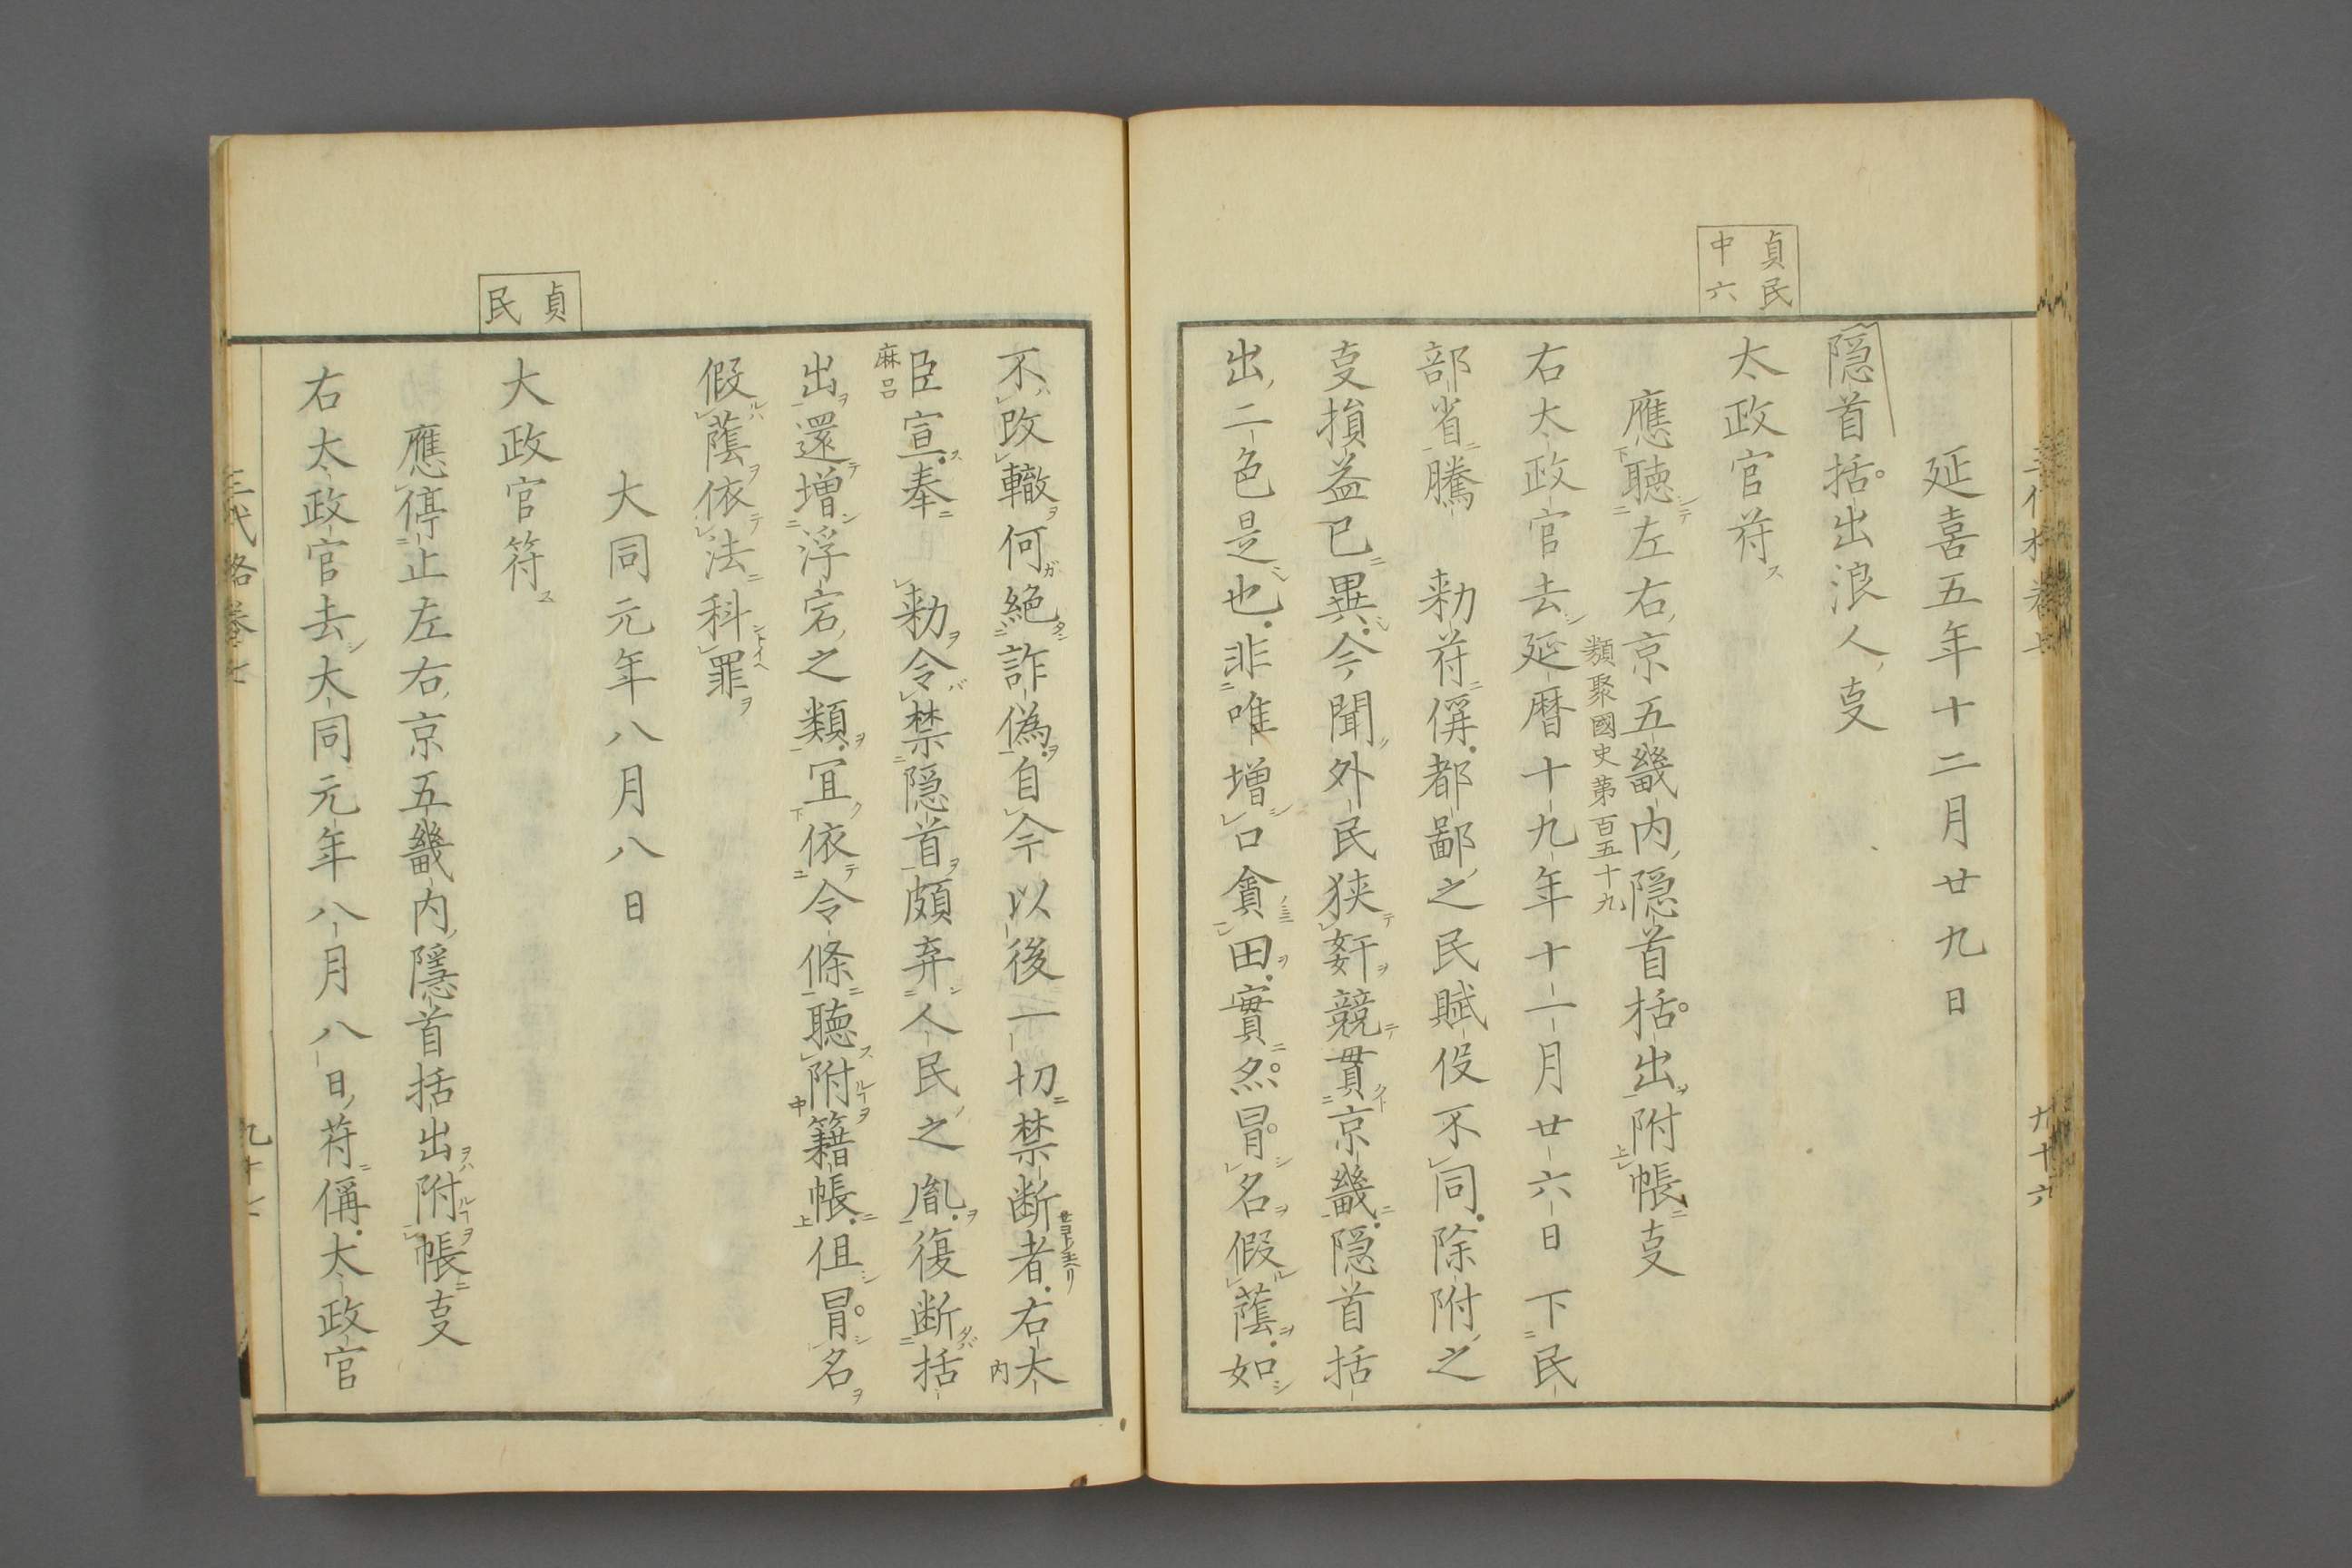 貞民
中六
延喜五年十二月廿九日
隠首括出浪人叓
太政官苻ス
應聴左右京五畿内隠首括出附帳叓
類聚國史第百五十九
右太政官去延暦十九年十一月廿六日下民
部省騰勅苻偁都鄙之民賦伇不同除附之
叓損益已異今聞外民狭奸競貫京畿隠首括
出二色是也非唯増口貪田實然冒名假蔭如
九十六
貞
民
不改轍何絶詐偽自今以後一切禁断者右大
内
麻呂
臣宣奉勅令禁隠首頗弃人民之胤復断括
出還増浮宕之類冝依令條聴附籍帳但冒名
假蔭依法科罪
大同元年八月八日
大政官苻ス
應停止左右京五畿内隱首括出附帳叓
右太政官去大同元年八月八日苻偁太政官
三代格巻七